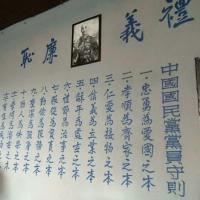 禮義廉恥
中國國民黨黨員守則
一.忠勇為愛國之本
二.孝順為齊家之本
三.仁愛為接物之本
四.信義為立業之本
五.和平為處世之本
六.禮節為治事之本
七.服從為負責之本
八.勤儉為服務之本
九.整潔為強身之本
十.助人為快樂之本